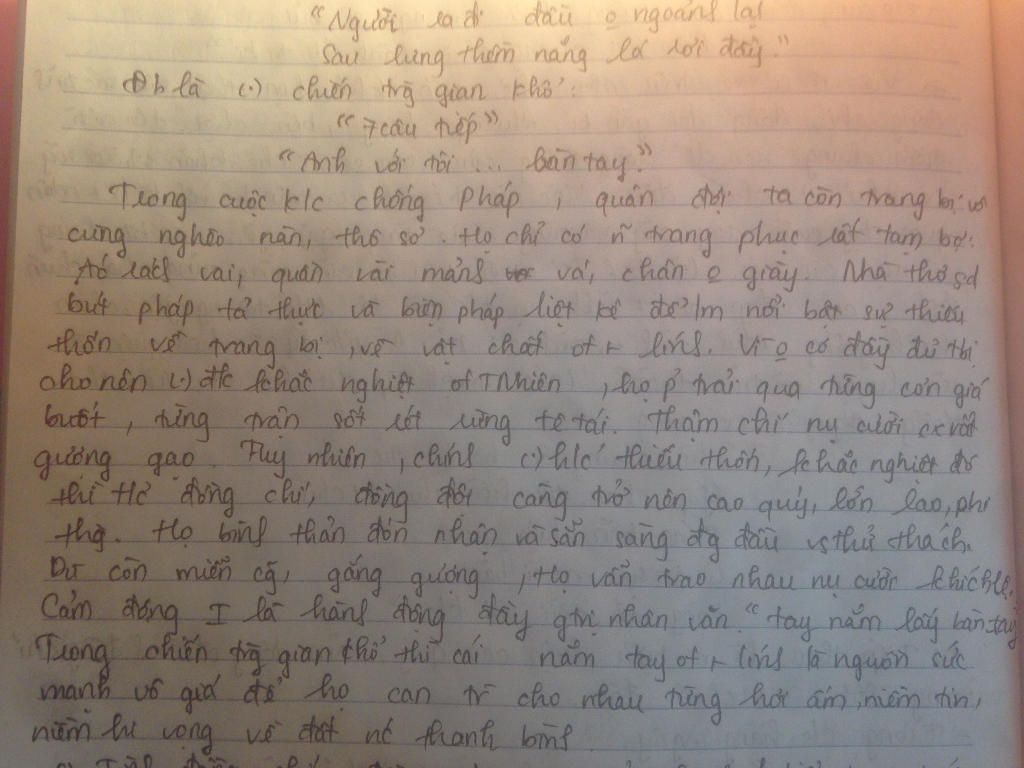 "Người ra đi đầu o ngoảnh lại
Sau lưng thềm nắng lá rơi đầy."
Đb là (.) chiến trg gian khổ:
"7 câu tiếp"
"Anh với tôi ... bàn tay."
Trong cuộc k/c chống Pháp, quân đội ta còn trang bị vô
cùng nghèo nàn, thô sơ. Họ chỉ có ~ trang phục rất tạm bợ:
Áo rách vai, quần vài mảnh vá, chân o giày. Nhà thơ sd
bút pháp tả thực và biện pháp liệt kê để lm nổi bật sự thiếu
thốn về trang bị, về vật chất of + lính. Vì o có đầy đủ tbị
cho nên (.) đk khắc nghiệt of TNhiên, họ p trải qua từng cơn giá
buốt, từng trận sốt rét rừng tê tái. Thậm chí nụ cười cx
gượng gạo. Tuy nhiên, chính (.) h/c thiếu thốn, khắc nghiệt đó
thì tc đồng chí, đồng đội càng trở nên cao quý, lớn lao, phi
thg. Họ bình thản đón nhận và sẵn sàng đg đầu vs thử thách.
Dù còn miễn cg, gắng gượng, họ vẫn trao nhau nụ cười khích lệ.
Cảm động I là hành động đầy gtrị nhân văn "tay nắm lấy bàn tay
Trong chiến trg gian khổ thì cái nắm tay of + lính là nguồn sức
mạnh vô giá để họ can trì cho nhau từng hơi ấm, niềm tin,
niềm hi vọng về đất nc thanh bình.